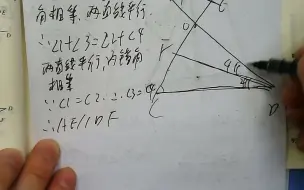 角相等,两直线平行.
∴∠1+∠3=∠2+∠4
两直线平行,内错角
相等
∵∠1=∠2 ∴∠3=∠4
∴AE∥DF
O
F
C
D